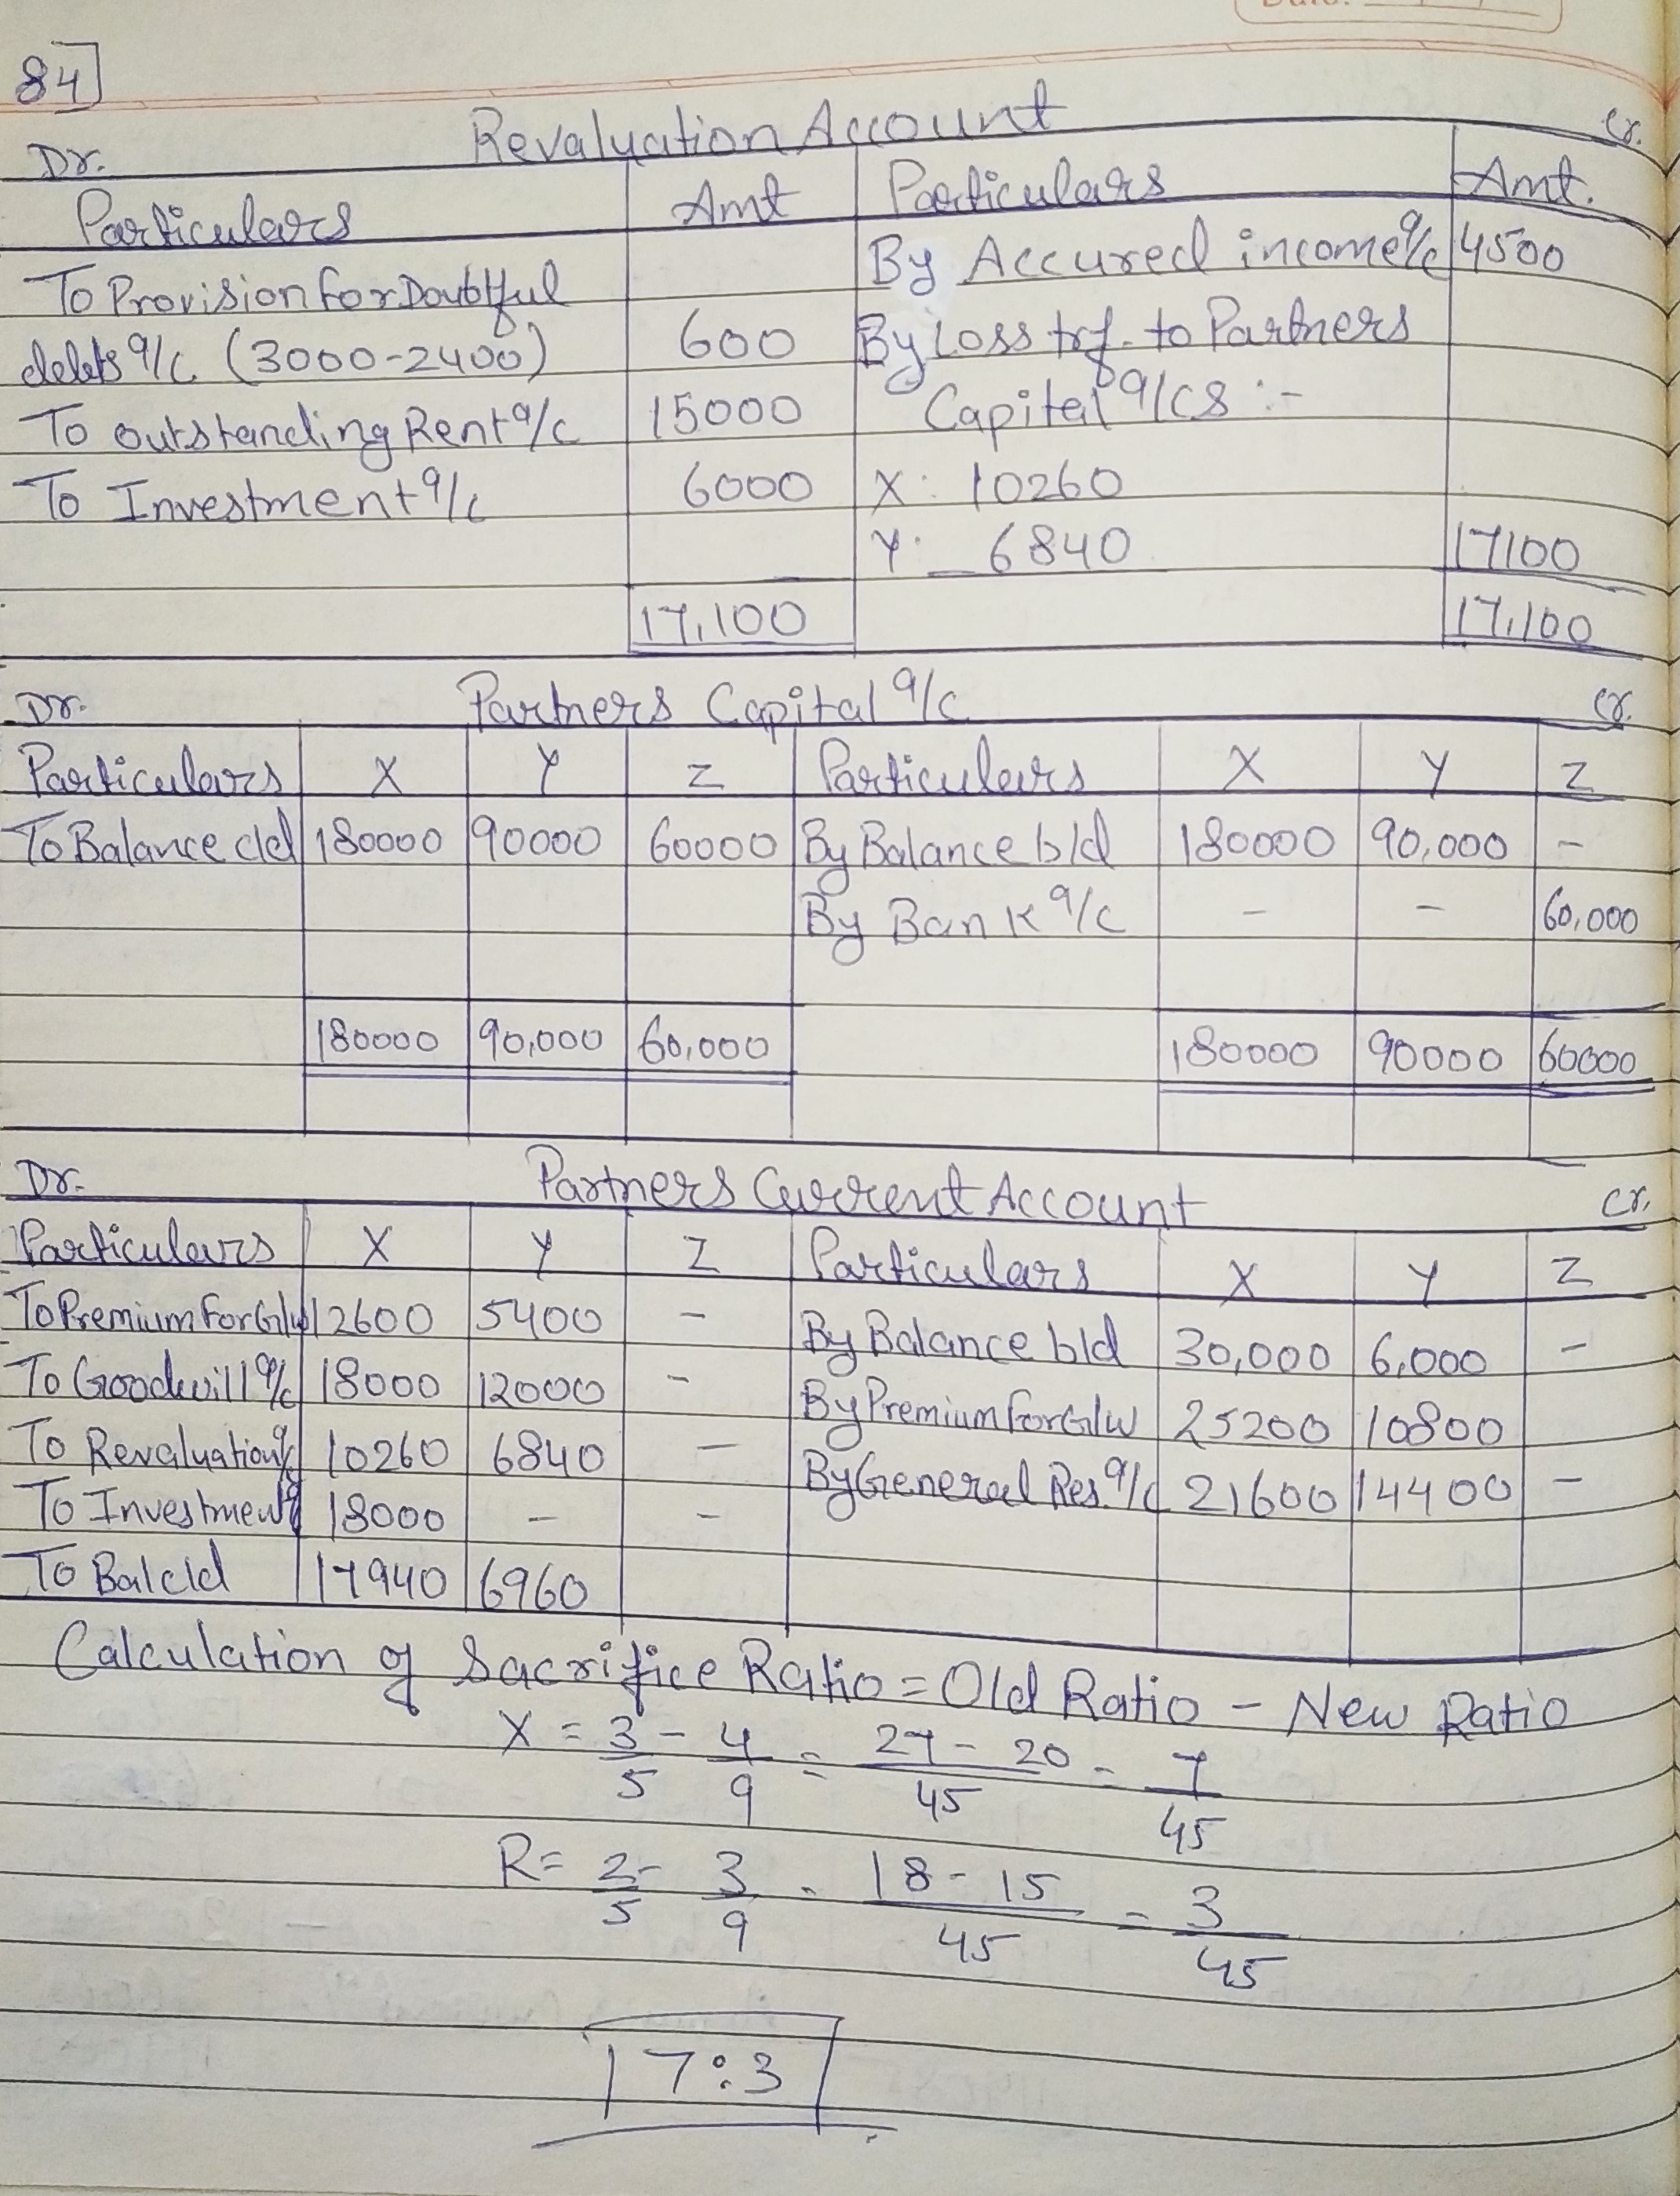 84]
Revaluation Account
Dr. Cr.
Particulars Amt Particulars Amt.
To Provision for Doubtful By Accured income a/c 4500
debts a/c (3000-2400) 600 By Loss trf. to Partners
To outstanding Rent a/c 15000 Capital a/cs :-
To Investment a/c 6000 X: 10260
Y: 6840 17100
17,100 17,100
Dr. Partners Capital a/c Cr.
Particulars X Y Z Particulars X Y Z
To Balance c/d 180000 90000 60000 By Balance b/d 180000 90,000 -
By Bank a/c - - 60,000
180000 90,000 60,000 180000 90000 60000
Dr. Partners Current Account Cr.
Particulars X Y Z Particulars X Y Z
To Premium for G/w 12600 5400 - By Balance b/d 30,000 6,000 -
To Goodwill a/c 18000 12000 - By Premium for G/w 25200 10800
To Revaluation a/c 10260 6840 - By General Res. a/c 21600 14400 -
To Investment a/c 18000 - -
To Bal c/d 17940 6960
Calculation of Sacrifice Ratio = Old Ratio - New Ratio
X = 3/5 - 4/9 = 27 - 20/45 = 7/45
R = 2/5 - 3/9 = 18 - 15/45 = 3/45
7:3